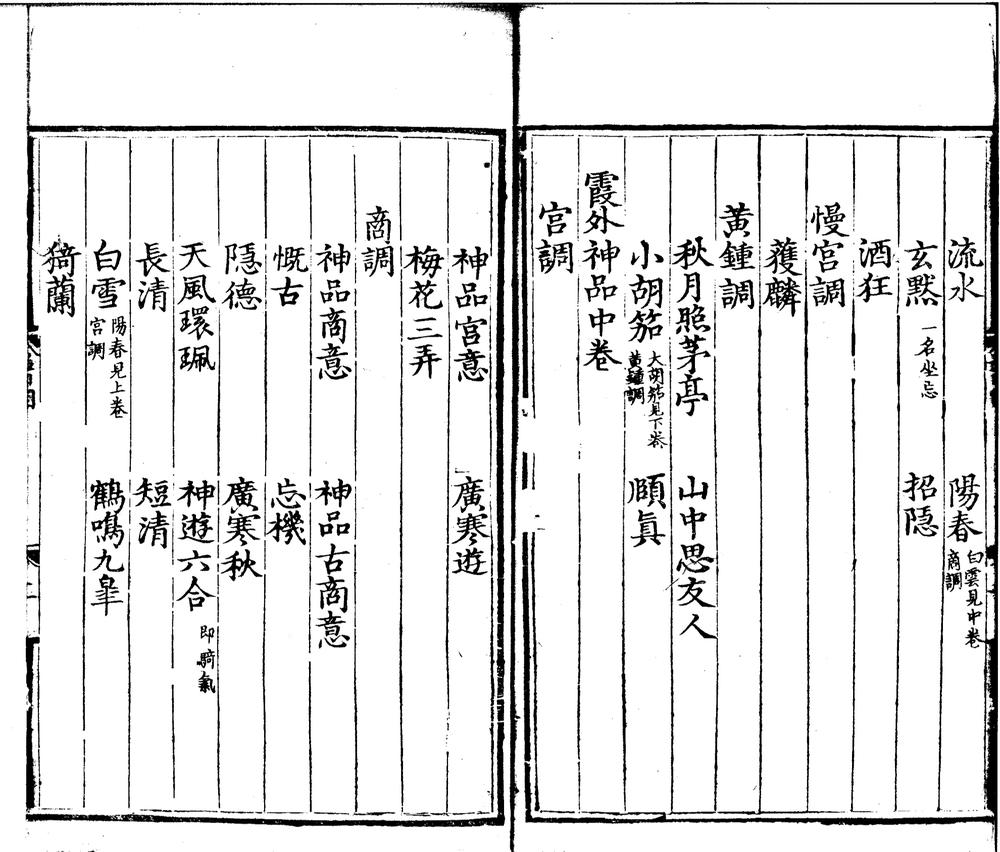 流水　陽春 白雪見中卷商調
玄黙 一名坐忘　招隠
酒狂
慢宮調
蒦麟
黃鍾調
秋月照茅亭　山中思友人
小胡笳 大胡笳見下卷黃鍾調　頥眞
霞外神品中卷
宮調
神品宮意　廣寒遊
梅花三弄
商調
神品商意　神品古商意
慨古　忘機
隠德　廣寒秋
天風環珮　神遊六合 即騎氣
長清　短清
白雪 陽春見上卷宮調　鶴鳴九臯
猗蘭